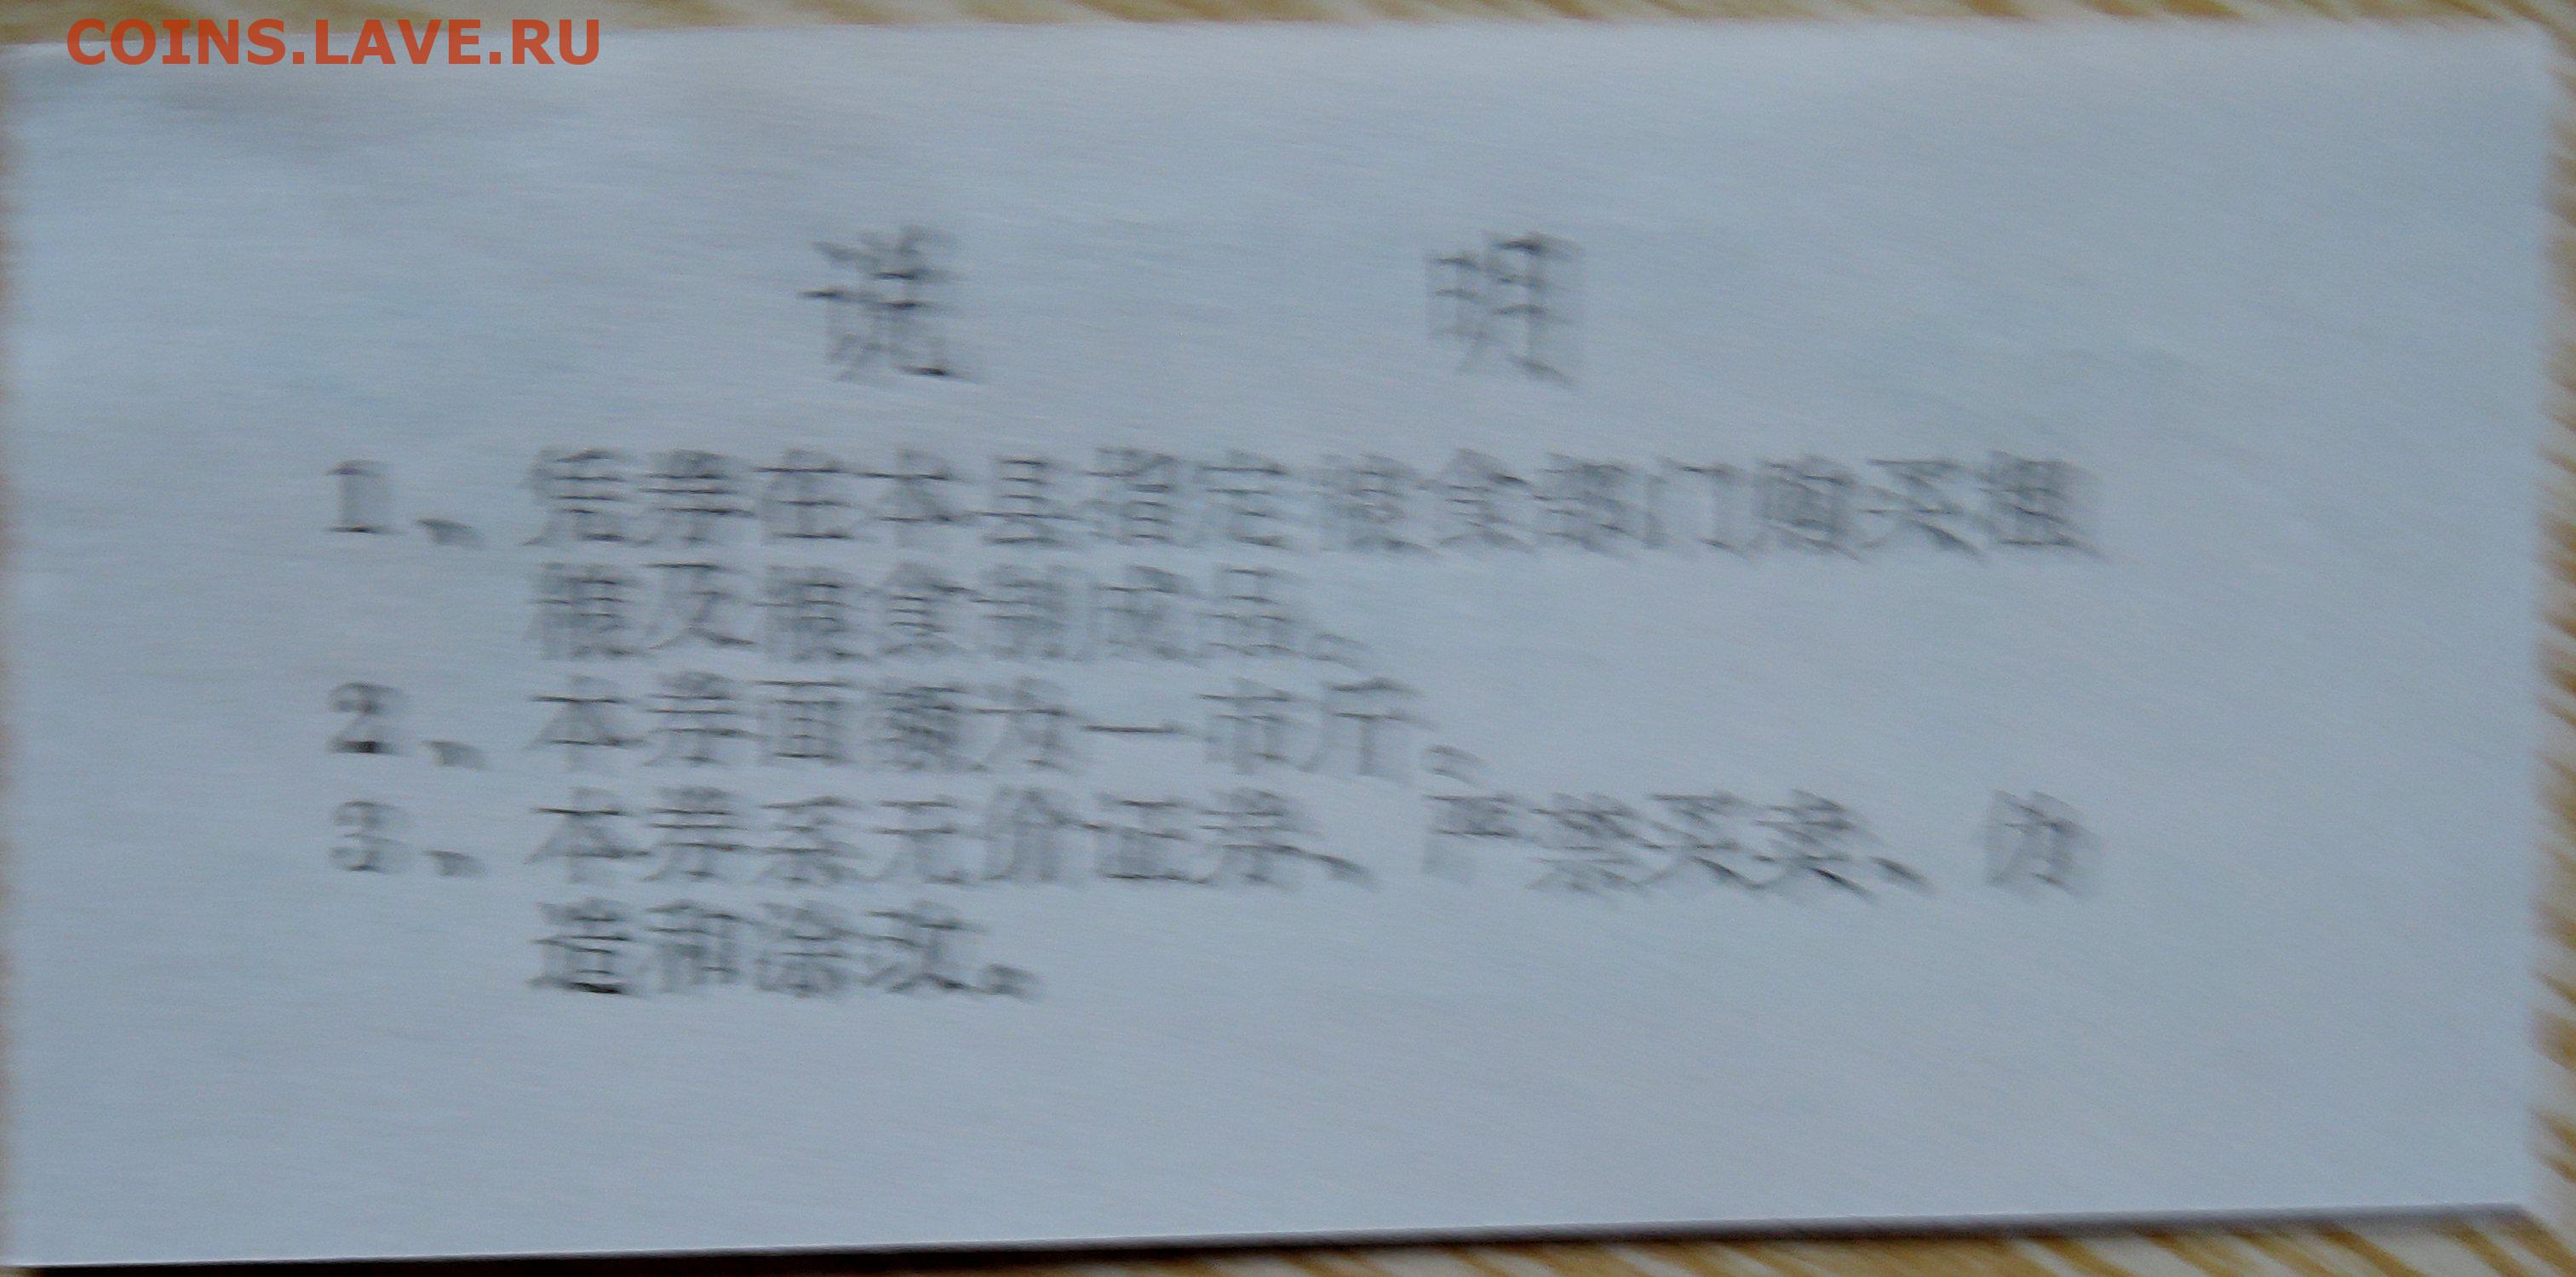 COINS.LAVE.RU
说 明
1、凭券在本县指定粮食部门购买粮
粮及粮食制成品。
2、本券面额为一市斤。
3、本券系无价证券、严禁买卖、仿
造和涂改。